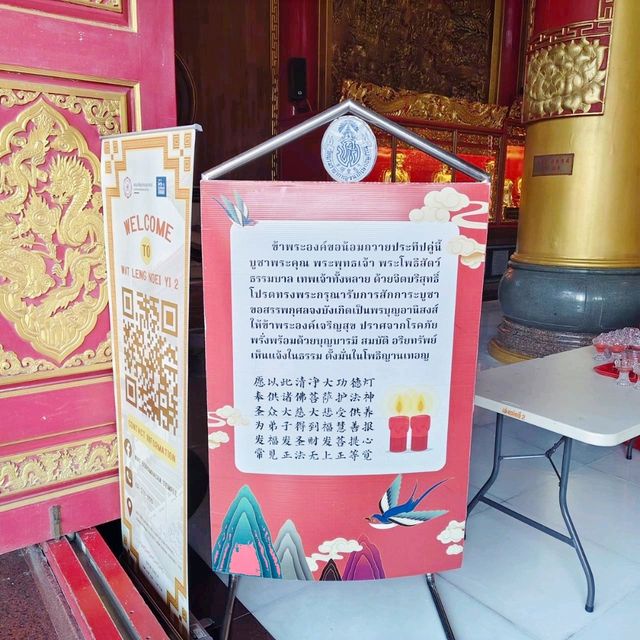 WELCOME
TO
WAT LENG NOEI YI 2
CONTACT INFORMATION
ข้าพระองค์ขอน้อมถวายประทีปคู่นี้
บูชาพระคุณ พระพุทธเจ้า พระโพธิสัตว์
ธรรมบาล เทพเจ้าทั้งหลาย ด้วยจิตบริสุทธิ์
โปรดทรงพระกรุณารับการสักการะบูชา
ขอสรรพกุศลจงบังเกิดเป็นพรบุญอานิสงส์
ให้ข้าพระองค์เจริญสุข ปราศจากโรคภัย
พรั่งพร้อมด้วยบุญบารมี สมบัติ อริยทรัพย์
เห็นแจ้งในธรรม ตั้งมั่นในโพธิญาณเทอญ
愿以此清净大功德灯
奉供诸佛菩萨护法神
圣众大慈大悲受供养
为弟子得到福慧善报
发福发圣财发菩提心
常見正法无上正等觉